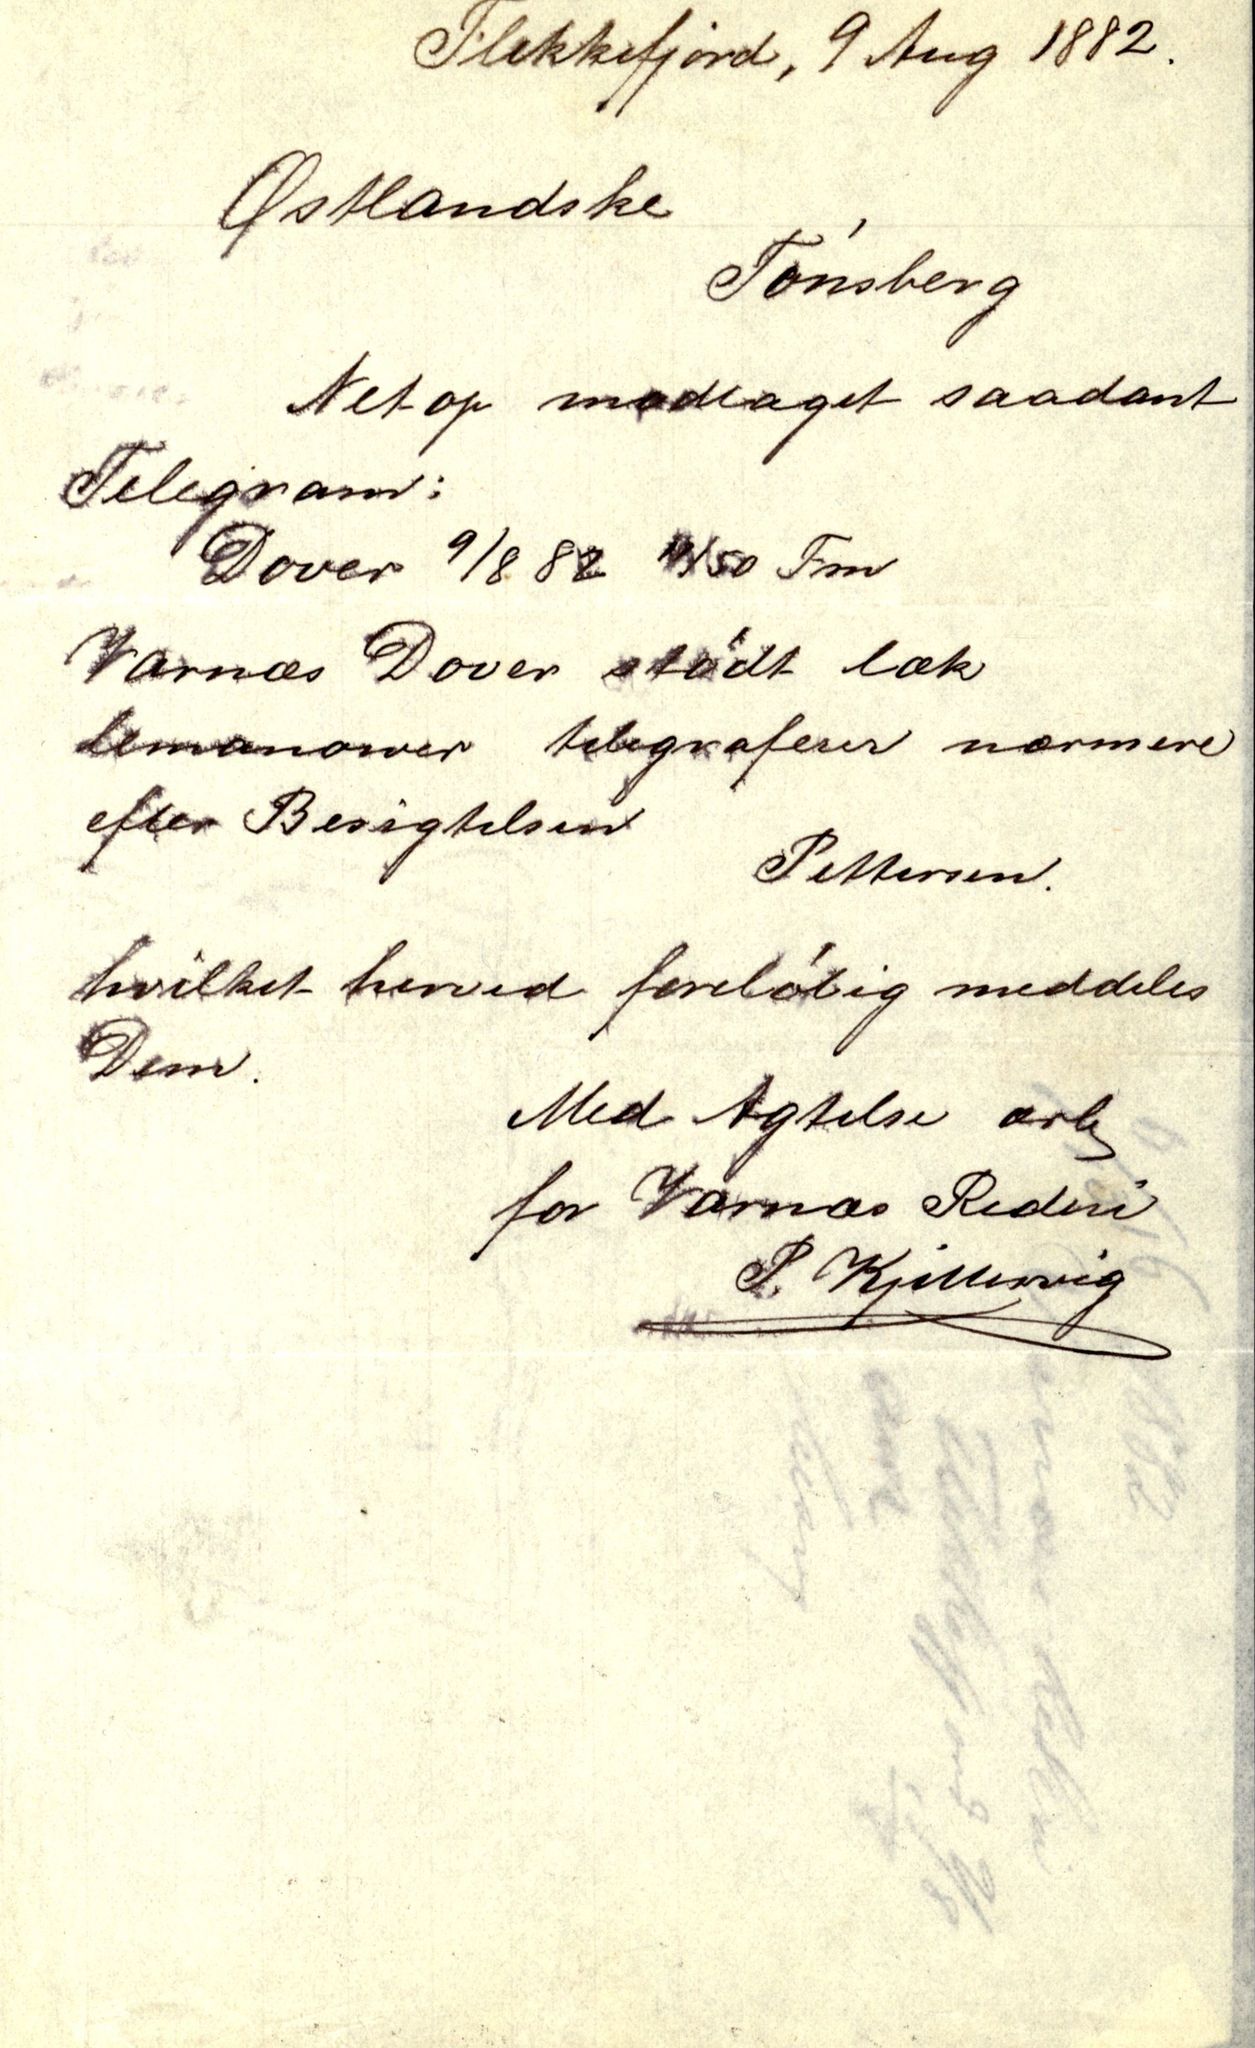 Flekkefjord, 9 Aug 1882.
Østlandske
Tónsberg
Netop modtaget saadant
Telegram:
Dover 9/8 82 50 Fm
Varnæs Dover stódt læk
lemanower telegraferer nærmere
efter Besigtelsen
Pettersen.
hvilket herved forelóbig meddeles
Dem.
Med Agtelse ærb
for Varnæs Rederi
P. Kjellervig